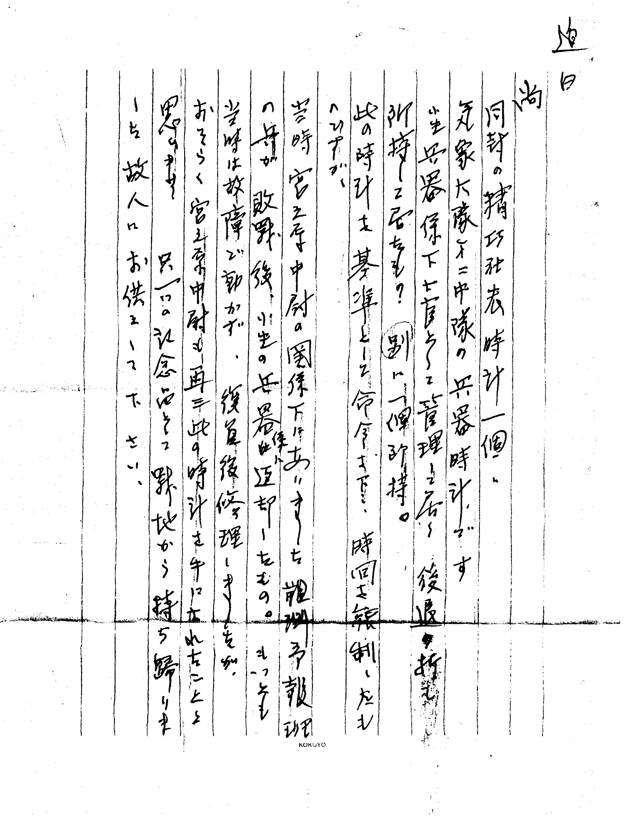 追白
尚
同封の精巧社表時計一個、
気象大隊第二中隊の兵器時計です
小生兵器係下士官として管理して居り 後退の折も
所持して居たもの 別に一個所持。
此の時計を基準として命令下、時間を統制したも
のですが、
当時 宮之原中尉の関係下にありました観測予報班
の兵が敗戦後、小生の兵器係へ返却したもの。もっとも
当時は故障で動かず、復員後修理しましたが、
おそらく宮之原中尉も再三此の時計を手にされたことと
思います 只一つの記念品として戦地から持ち帰りま
した故人にお供えして下さい、
KOKUYO